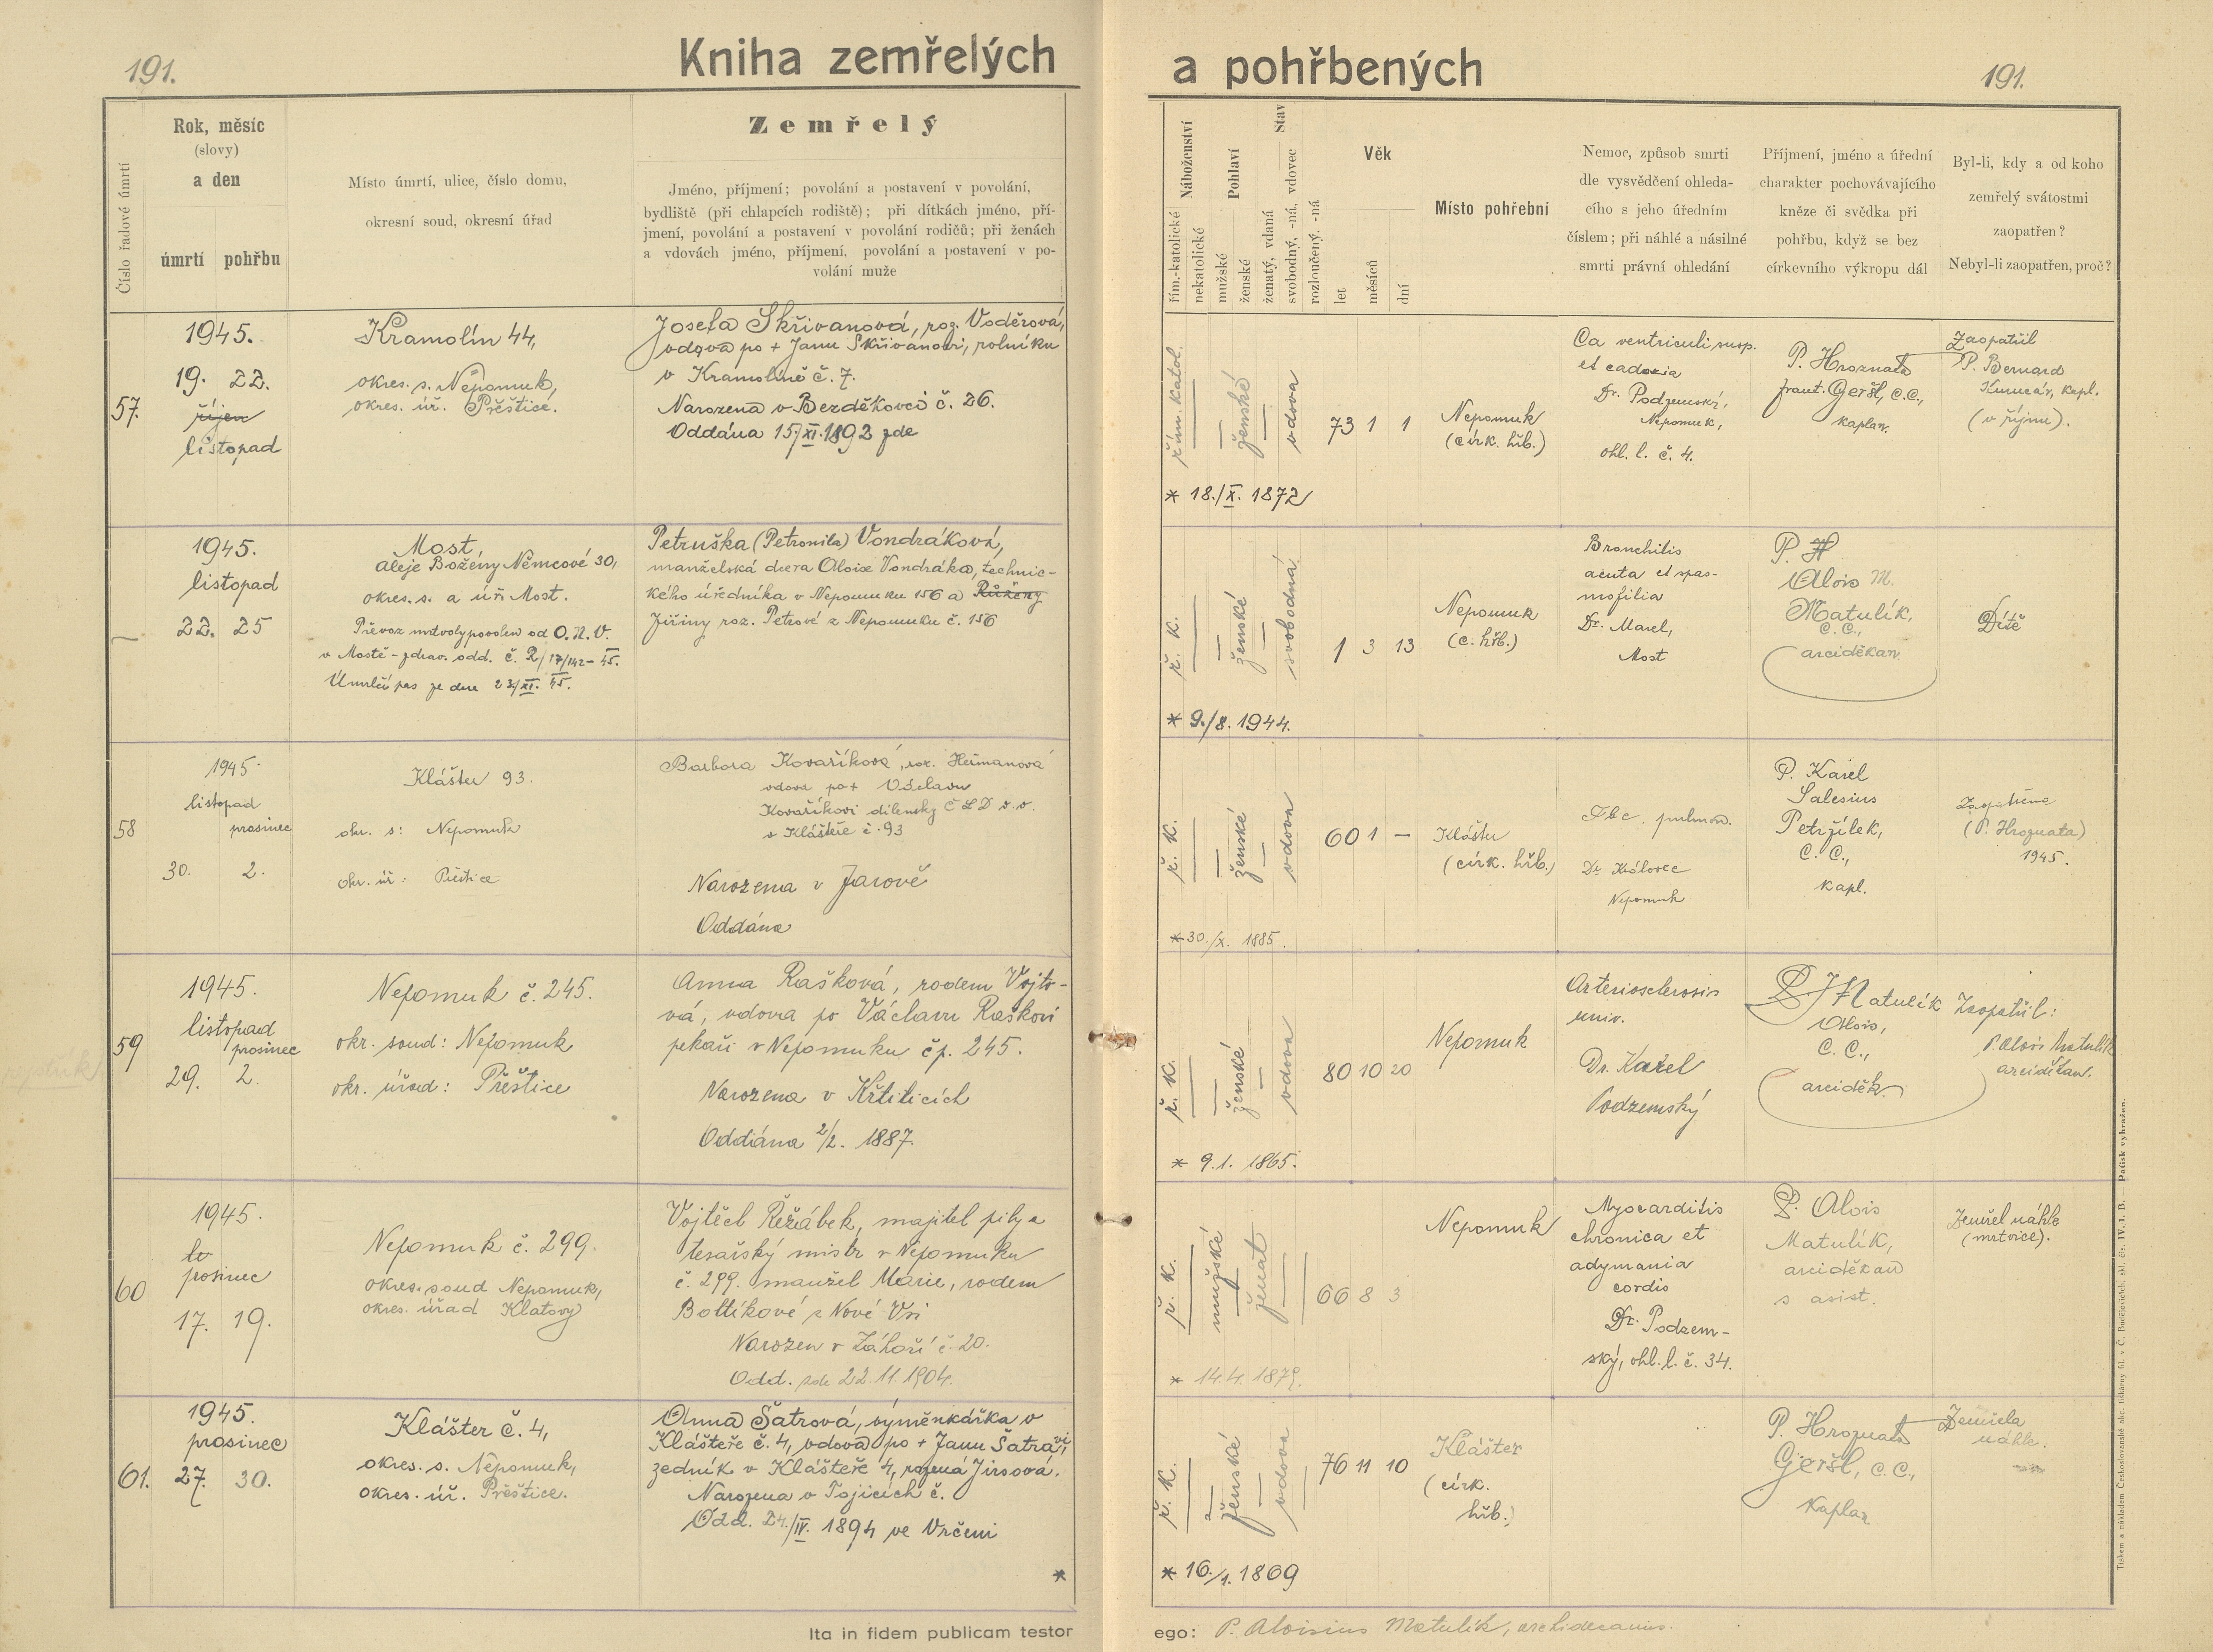 191.
Kniha zemřelých
Číslo řadové úmrtí
Rok, měsíc
(slovy)
a den
úmrtí
pohřbu
Místo úmrtí, ulice, číslo domu,
okresní soud, okresní úřad
Zemřelý
Jméno, příjmení; povolání a postavení v povolání,
bydliště (při chlapcích rodiště); při dítkách jméno, pří-
jmení, povolání a postavení v povolání rodičů; při ženách
a vdovách jméno, příjmení, povolání a postavení v po-
volání muže
57.
1945.
19. 22.
říjen
listopad
Kramolín 44,
okres. s. Nepomuk,
okres. úř. Přeštice.
Josefa Skřivanová, roz. Voděrová,
vdova po + Janu Skřivanovi, rolníku
v Kramolíně č. 7.
Narozena v Bezděkovci č. 26.
Oddána 15/XI. 1892 zde
1945.
listopad
22. 25
Most,
aleje Boženy Němcové 30,
okres. s. a úř. Most.
Převoz mrtvoly povolen od O. N. V.
v Mostě - zdrav. odd. č. R/17/142 - 45.
Úmrlčí pas ze dne 23/XI. 45.
Petruška (Petronila) Vondráková,
manželská dcera Aloise Vondráka, technic-
kého úředníka v Nepomuku 156 a Růženy
Jiřiny roz. Petrové z Nepomuku č. 156
58
1945
listopad
prosinec
30. 2.
Klášter 93.
okr. s: Nepomuk
okr. úř: Přeštice
Barbora Kovaříková, roz. Heřmanová
vdova po + Václavu
Kovaříkovi dílensky ČSD v. v.
v Klášteře č. 93
Narozena v Jarově
Oddána
59
1945.
listopad
prosinec
29. 2.
Nepomuk č. 245.
okr. soud: Nepomuk
okr. úřad: Přeštice
Anna Rašková, rodem Vojto-
vá, vdova po Václavu Raškovi
pekaři v Nepomuku čp. 245.
Narozena v Křtiticích
Oddána 2/2. 1887.
60
1945.
prosinec
17. 19.
Nepomuk č. 299.
okres. soud Nepomuk,
okres. úřad Klatovy
Vojtěch Řežábek, majitel pily a
tesařský mistr v Nepomuku
č. 299. manžel Marie, rodem
Bottíkové z Nové Vsi
Narozen v Záhoří č. 20.
Odd. zde 22. 11. 1904.
61.
1945.
prosinec
27. 30.
Klášter č. 4,
okres. s. Nepomuk,
okres. úř. Přeštice.
Anna Šatrová, výměnkářka v
Klášteře č. 4, vdova po + Janu Šatrovi,
zedník v Klášteře 4, rozená Jirsová.
Narozena v Tojicích č.
Odd. 24./IV. 1894 ve Vrčeni
*
Ita in fidem publicam testor
a pohřbených
191.
Náboženství
řím.-katolické
nekatolické
Pohlaví
mužské
ženské
Stav
ženatý, vdaná
svobodný, -ná, vdovec
rozloučený, -ná
Věk
let
měsíců
dní
Místo pohřební
Nemoc, způsob smrti
dle vysvědčení ohleda-
cího s jeho úředním
číslem; při náhlé a násilné
smrti právní ohledání
Příjmení, jméno a úřední
charakter pochovávajícího
kněze či svědka při
pohřbu, když se bez
církevního výkropu dál
Byl-li, kdy a od koho
zemřelý svátostmi
zaopatřen?
Nebyl-li zaopatřen, proč?
řím. katol.
ženské
vdova
73 1 1
* 18./X. 1872
Nepomuk
(círk. hřb.)
Ca ventriculi susp.
et cadexia
Dr. Podzemský,
Nepomuk,
ohl. l. č. 4.
P. Hroznata
frant. Geršl, c.c.,
kaplan.
Zaopatřil
P. Bernard
kapl.
(v říjnu).
ř. k.
ženské
svobodná
1 3 13
* 9./8. 1944.
Nepomuk
(c. hřb.)
Bronchitis
acuta et spas-
mofilia
Dr. Marel,
Most
P. H
Alois M.
Matulík,
c. c.,
arciděkan.
Dítě
ř. k.
ženské
vdova
60 1 —
* 30./X. 1885.
Klášter
(círk. hřb.)
Tbc. pulmon.
Dr Královec
Nepomuk
P. Karel
Salesius
Petržílek,
C. C.,
kapl.
Zaopatřena
(P. Hroznata)
1945.
ř. k.
ženské
vdova
80 10 20
* 9. 1. 1865.
Nepomuk
Arteriosclerosis
univ.
Dr. Karel
Podzemský
P. Matulík
Alois,
C. C.,
arciděk.
Zaopatřil:
P. Alois Matulík
arciděkan.
ř. k.
mužské
ženat
66 8 3
* 14. 4. 1879.
Nepomuk
Myocarditis
chronica et
adymania
cordis
Dr. Podzem-
ský, ohl. l. č. 34.
P. Alois
Matulík,
arciděkan
s asist.
Zemřel náhle
(mrtvice).
ř. k.
ženské
vdova
76 11 10
* 16./1. 1869
Klášter
(círk.
hřb.)
P. Hroznata
Geršl, c. c.,
kaplan
Zemřela
náhle.
ego: P. Aloisius Matulík, archidecanus.
Tiskem a nákladem Českoslovanské akc. tiskárny fil. v Č. Budějovicích, skl. čís. IV. 1. B. — Patisk vyhražen.